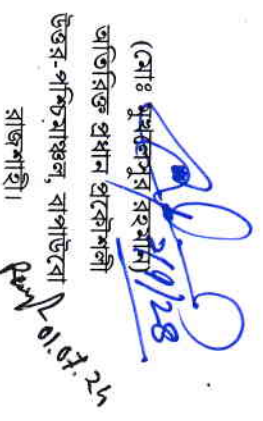 ১/৭/২৪
(মোঃ মুখলেসুর রহমান)
অতিরিক্ত প্রধান প্রকৌশলী
উত্তর-পশ্চিমাঞ্চল, বাপাউবো
রাজশাহী।
01.07.24